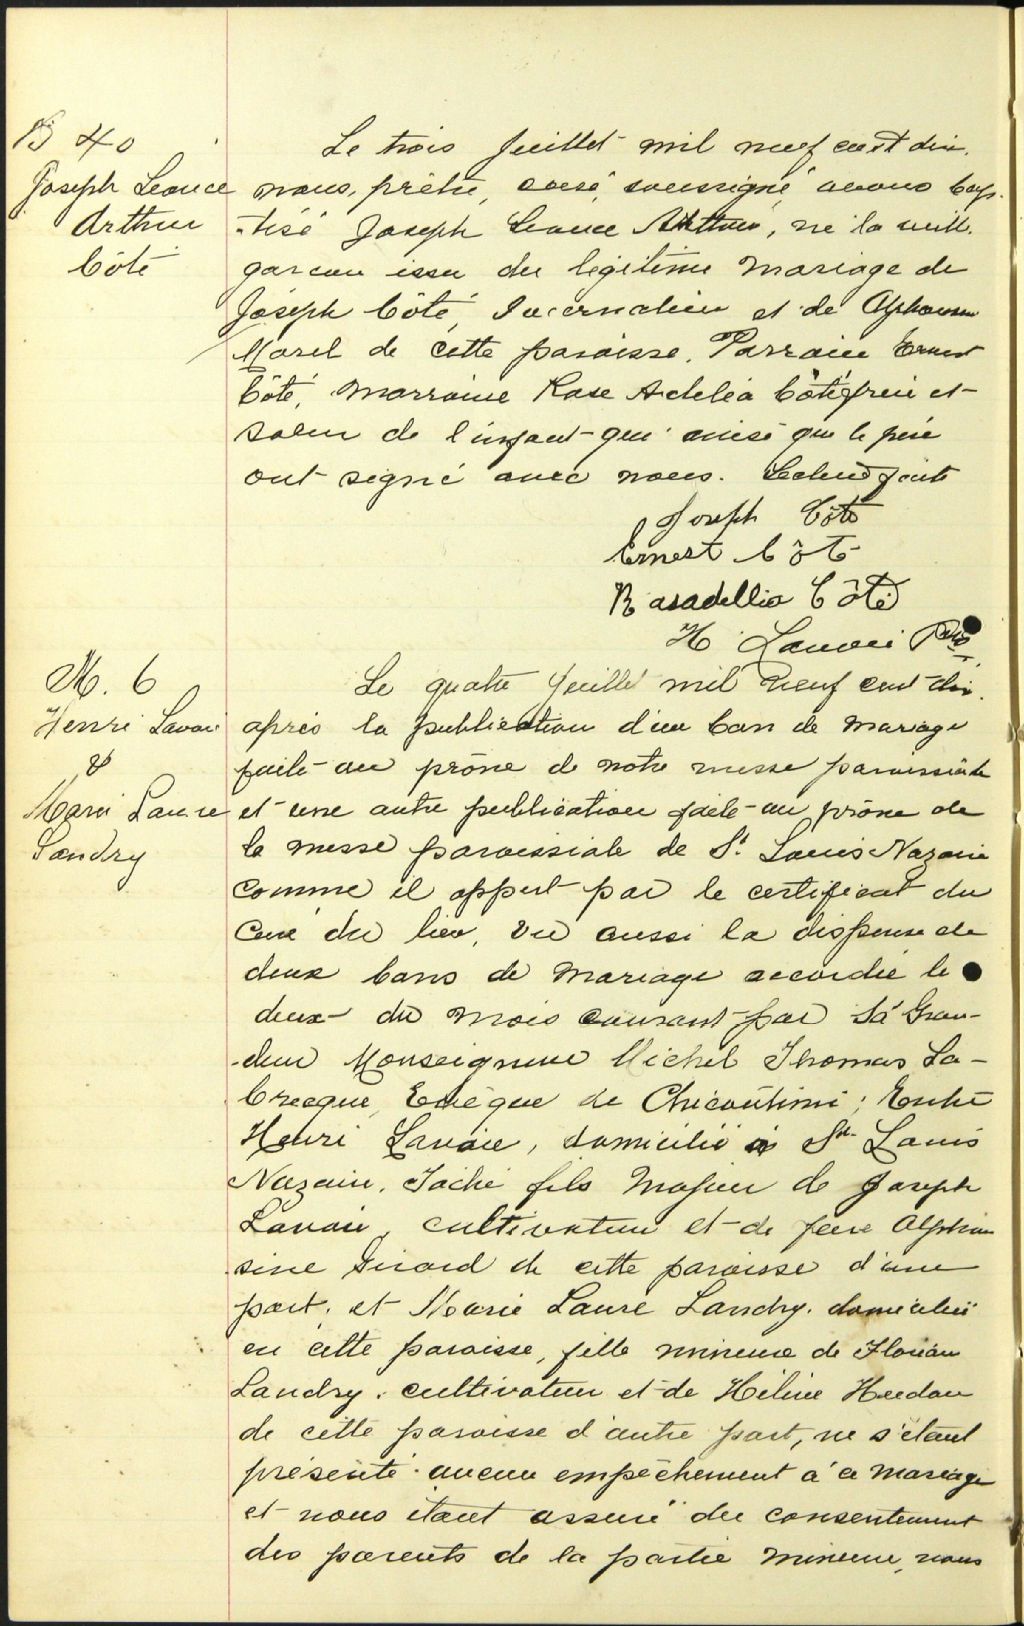 B 40
Joseph Léonce
Arthur
Côté
Le trois Juillet mil neuf cent dix
nous, prêtre, curé soussigné avons bap-
-tisé Joseph Léonce Arthur, né la veille
garçon issu du légitime mariage de
Joseph Côté, et de Alphonsine
Morel de cette paroisse. Parrain Ernest
Côté, marraine Rose Adelia Côté frère et
soeur de l'enfant qui ainsi que le père
ont signé avec nous. Lecture faite
Joseph Côté
Ernest Côté
Rosadellia Côté
H Lavoie Ptre
M. 6
Henri Lavoie
&
Marie Laure
Landry
Le quatre Juillet mil neuf cent dix
après la publication d'un ban de mariage
faite au prône de notre messe paroissiale
et une autre publication faite au prône de
la messe paroissiale de St Louis Nazaire
comme il appert par le certificat du
curé du lieu, vu aussi la dispense de
deux bans de mariage accordée le
deux du mois courant par Sa Gran-
-deur Monseigneur Michel Thomas La-
brecque, Evêque de Chicoutimi; Entre
Henri Lavoie, domicilié à St Louis
Nazaire, Taché fils majeur de Joseph
Lavoie, cultivateur et de feue Alphon
sine Girard de cette paroisse d'une
part. et Marie Laure Landry. domiciliée
en cette paroisse, fille mineure de Florian
Landry, cultivateur et de Hélène Hudon
de cette paroisse d'autre part, ne s'étant
présenté aucun empêchement à ce mariage
et nous étant assuré du consentement
des parents de la partie mineure, nous